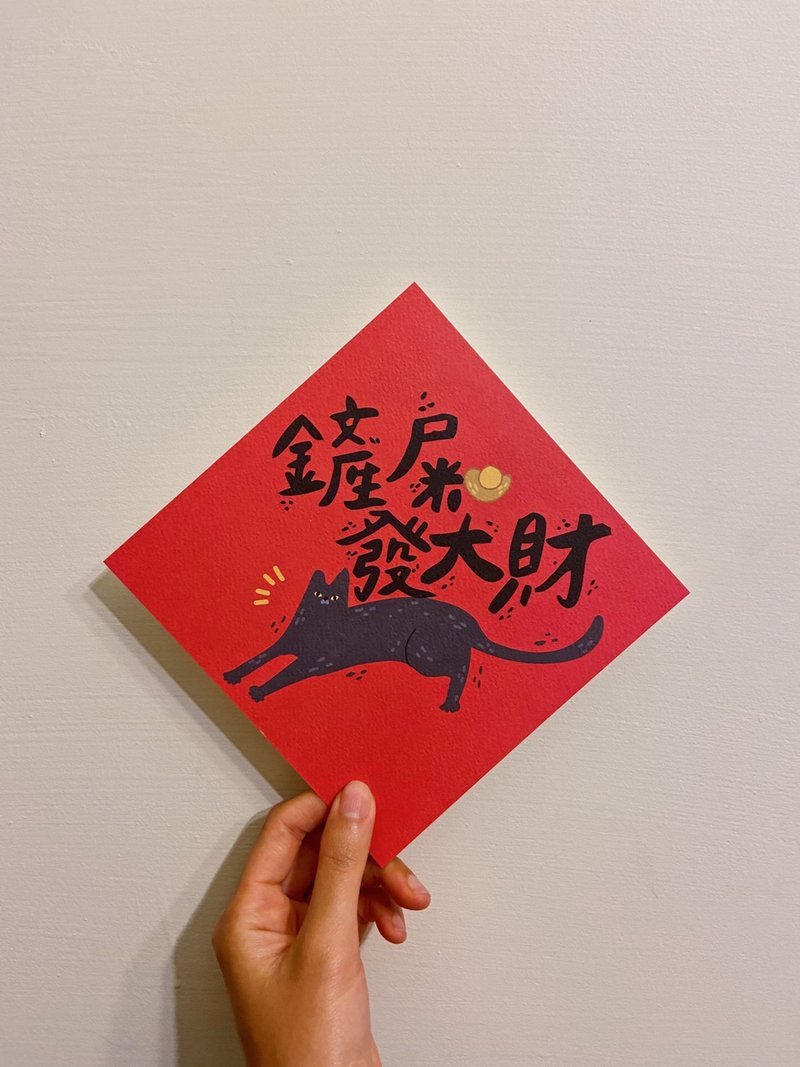 鏟屎
發大財